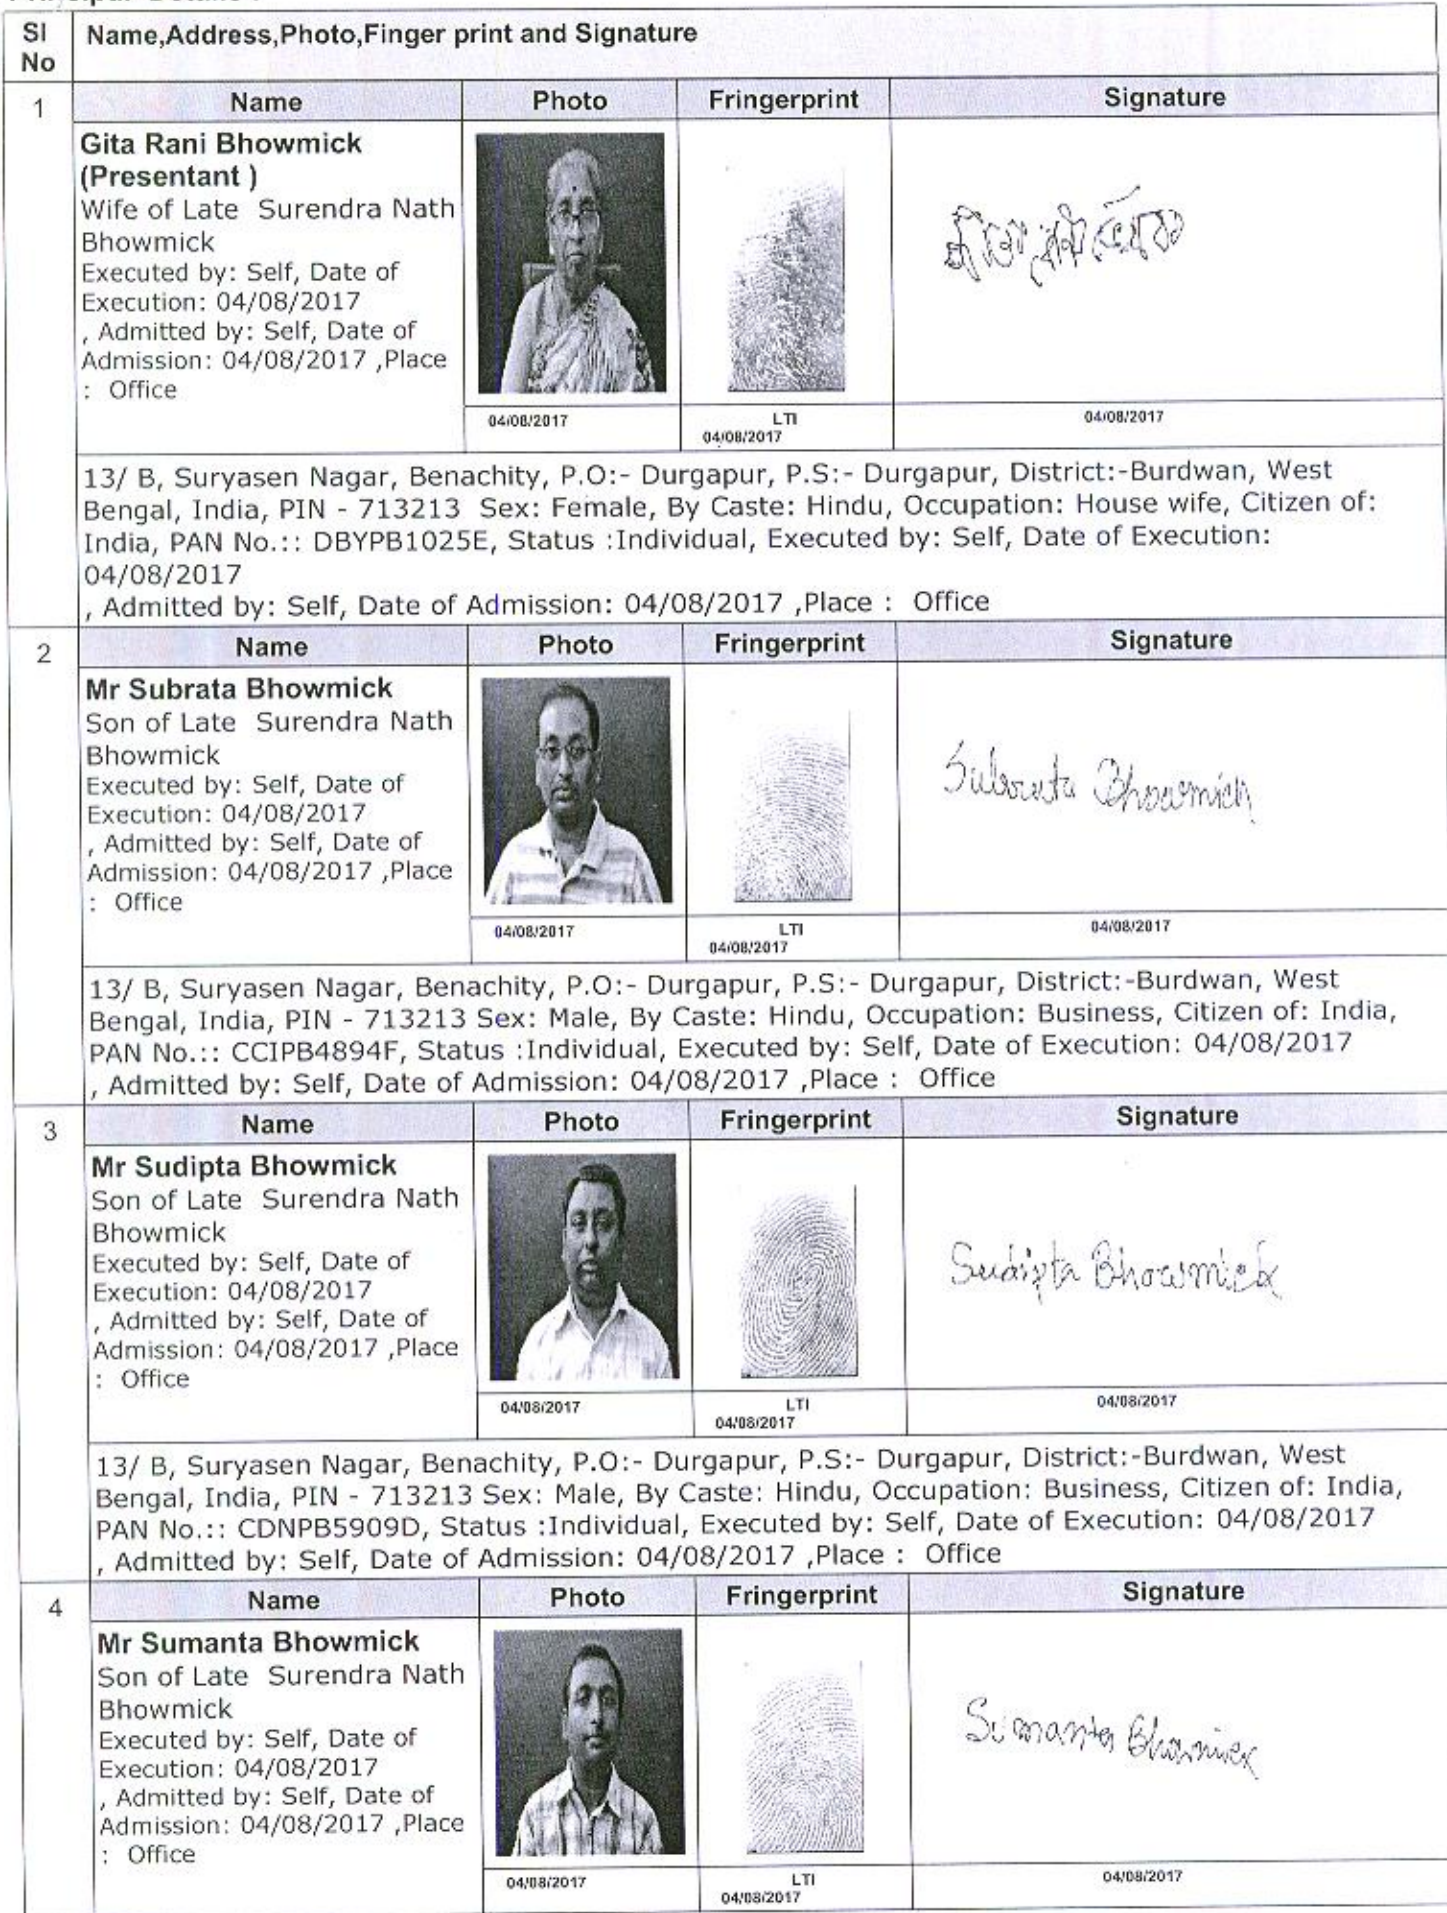 Sl No
Name,Address,Photo,Finger print and Signature
1
Name Photo Fringerprint Signature
Gita Rani Bhowmick
(Presentant )
Wife of Late Surendra Nath
Bhowmick
Executed by: Self, Date of
Execution: 04/08/2017
, Admitted by: Self, Date of
Admission: 04/08/2017 ,Place
: Office
04/08/2017
LTI
04/08/2017
04/08/2017
13/ B, Suryasen Nagar, Benachity, P.O:- Durgapur, P.S:- Durgapur, District:-Burdwan, West
Bengal, India, PIN - 713213 Sex: Female, By Caste: Hindu, Occupation: House wife, Citizen of:
India, PAN No.:: DBYPB1025E, Status :Individual, Executed by: Self, Date of Execution:
04/08/2017
, Admitted by: Self, Date of Admission: 04/08/2017 ,Place : Office
2
Name Photo Fringerprint Signature
Mr Subrata Bhowmick
Son of Late Surendra Nath
Bhowmick
Executed by: Self, Date of
Execution: 04/08/2017
, Admitted by: Self, Date of
Admission: 04/08/2017 ,Place
: Office
Subrata Bhowmick
04/08/2017
LTI
04/08/2017
04/08/2017
13/ B, Suryasen Nagar, Benachity, P.O:- Durgapur, P.S:- Durgapur, District:-Burdwan, West
Bengal, India, PIN - 713213 Sex: Male, By Caste: Hindu, Occupation: Business, Citizen of: India,
PAN No.:: CCIPB4894F, Status :Individual, Executed by: Self, Date of Execution: 04/08/2017
, Admitted by: Self, Date of Admission: 04/08/2017 ,Place : Office
3
Name Photo Fringerprint Signature
Mr Sudipta Bhowmick
Son of Late Surendra Nath
Bhowmick
Executed by: Self, Date of
Execution: 04/08/2017
, Admitted by: Self, Date of
Admission: 04/08/2017 ,Place
: Office
Sudipta Bhowmick
04/08/2017
LTI
04/08/2017
04/08/2017
13/ B, Suryasen Nagar, Benachity, P.O:- Durgapur, P.S:- Durgapur, District:-Burdwan, West
Bengal, India, PIN - 713213 Sex: Male, By Caste: Hindu, Occupation: Business, Citizen of: India,
PAN No.:: CDNPB5909D, Status :Individual, Executed by: Self, Date of Execution: 04/08/2017
, Admitted by: Self, Date of Admission: 04/08/2017 ,Place : Office
4
Name Photo Fringerprint Signature
Mr Sumanta Bhowmick
Son of Late Surendra Nath
Bhowmick
Executed by: Self, Date of
Execution: 04/08/2017
, Admitted by: Self, Date of
Admission: 04/08/2017 ,Place
: Office
Sumanta Bhowmick
04/08/2017
LTI
04/08/2017
04/08/2017